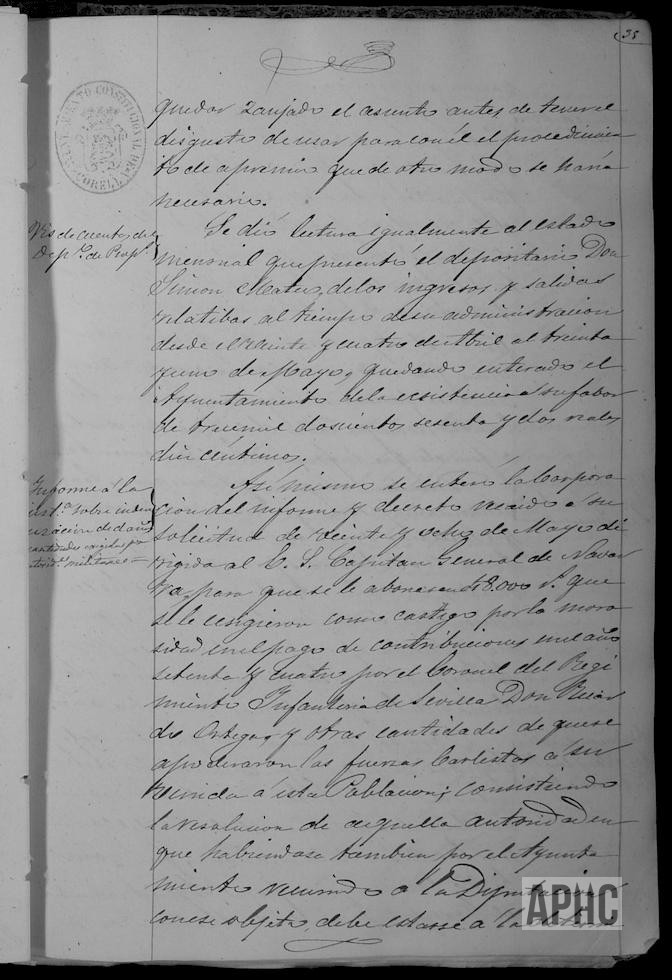 35
AYUNTAMIENTO CONSTITUCIONAL DE CORELLA
quedar zanjado el asunto antes de tener el
disgusto de usar para con él el procedimien
to de apremio que de otro modo se haría
necesario.
Vis de cuentas del
Dep.º de Prop.s
Se dió lectura igualmente al estado
mensual que presentó el depositario Don
Simon Mateo, de los ingresos y salidas
relatibas al tiempo de su administracion
desde el veinte y cuatro de Abril al treinta
y uno de Mayo, quedando enterado el
Ayuntamiento de la ecsistencia á su favor
de trece mil doscientos sesenta y dos reales
diez céntimos.
Informe á la
inst.ª sobre indem
nizacion de daños
cantidades exigidas por
autorid.s militares=
Asi mismo se enteró la Corpora
cion del informe y decreto recaido á su
solicitud de veinte y ocho de Mayo di
rigida al E. S. Capitan General de Navar
ra, para que se le abonasen 48.000 r.s que
se le ecsigieron como castigo por la moro
sidad en el pago de contribuciones en el año
setenta y cuatro por el Coronel del Regi
miento Infanteria de Sevilla Don Ricar
do Ortega, y otras cantidades de que se
apoderaron las fuerzas Carlistas á su
venida á esta Poblacion; consistiendo
la resolucion de aquella autoridad en
que habiendose tambien por el Ayunta
miento recurrido á la Diputacion
con ese objeto, debe estarse á la
APHC